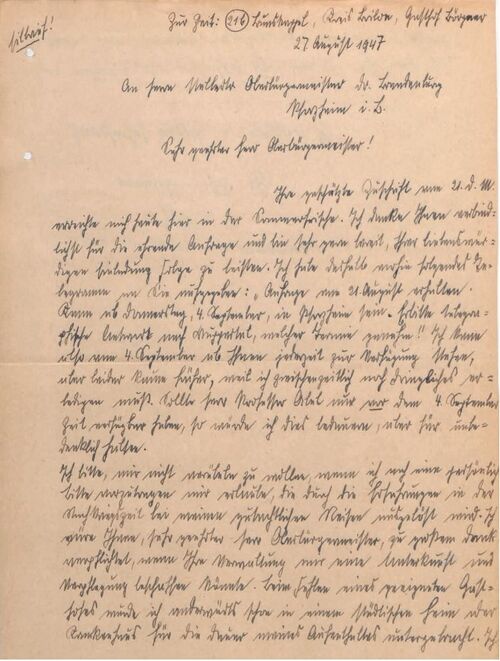 Eilbrief!
Zur Zeit: (21b) Bruchhausen, Kreis Brilon, Gasthof Börgener
27. August 1947
An Herrn Stellvertr. Oberbürgermeister Dr. Brandenburg
Pforzheim i. B.
Sehr geehrter Herr Oberbürgermeister!
Ihre geschätzte Zuschrift vom 21. d. M.
erreichte mich heute hier in der Sommerfrische. Ich danke Ihnen verbind-
lichst für die ehrende Anfrage und bin sehr gern bereit, Ihrer liebenswür-
digen Einladung Folge zu leisten. Ich habe deshalb vorhin folgendes Te-
legramm an Sie aufgegeben: „Anfrage vom 21. August erhalten.
Kann ab Donnerstag, 4. September, in Pforzheim sein. Erbitte telegra-
phische Antwort nach Wuppertal, welcher Termin genehm." Ich kann
also vom 4. September ab Ihnen jederzeit zur Verfügung stehen,
aber leider kaum früher, weil ich zwischenzeitlich noch Dringliches er-
ledigen muß. Sollte Herr Professor Abel nur vor dem 4. September
Zeit verfügbar haben, so würde ich dies bedauern, aber für unbe-
denklich halten.
Ich bitte, mir nicht verübeln zu wollen, wenn ich noch eine persönliche
Bitte vorzutragen mir erlaube, die durch die Erfahrungen in der
Nachkriegszeit bei meinen gutachtlichen Reisen ausgelöst wird. Ich
wäre Ihnen, sehr geehrter Herr Oberbürgermeister, zu großem Dank
verpflichtet, wenn Ihre Verwaltung mir eine Unterkunft und
Verpflegung beschaffen könnte. Beim Fehlen eines geeigneten Gast-
hofes wurde ich anderwärts schon in einem städtischen Heim oder
Krankenhaus für die Dauer meines Aufenthaltes untergebracht. Ich